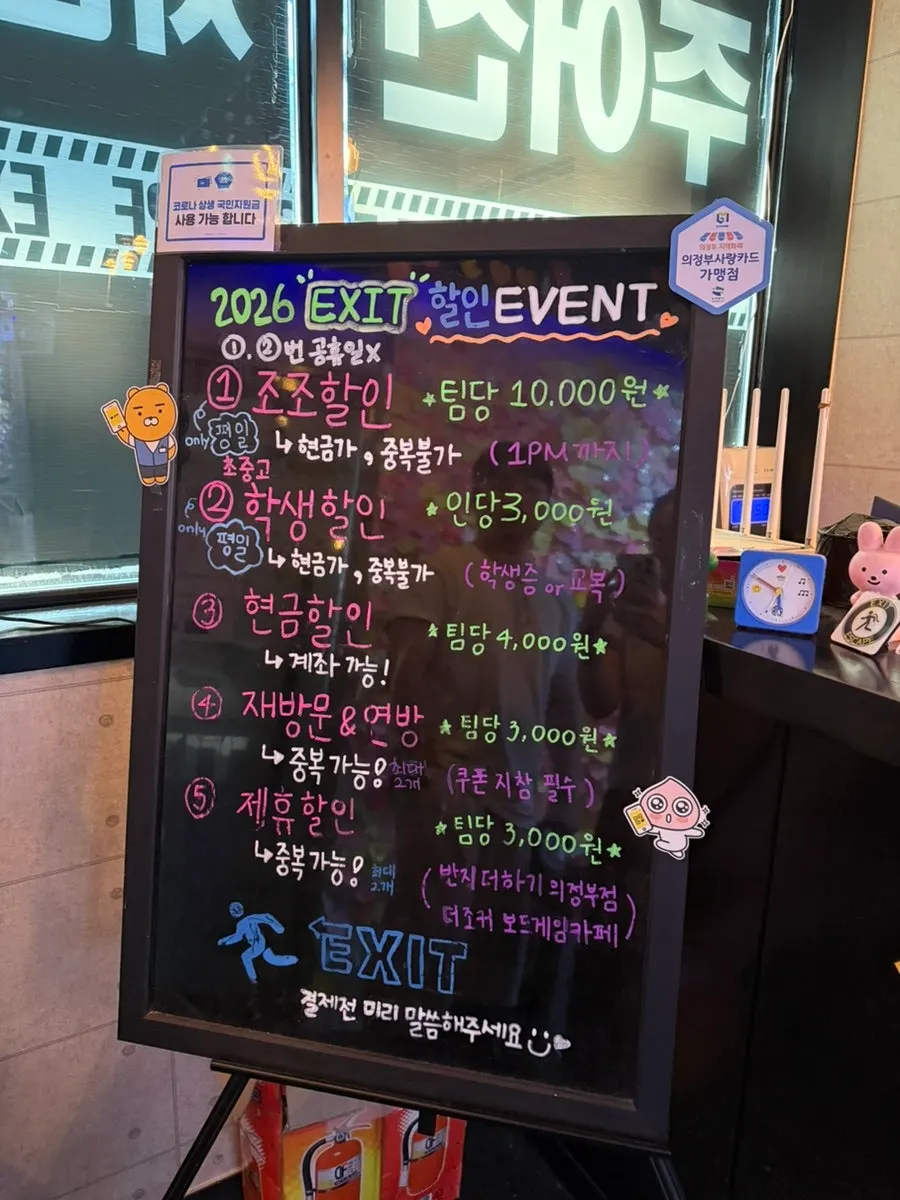 주어진
코로나 상생 국민지원금
사용 가능 합니다
의정부 지역화폐
의정부사랑카드
가맹점
2026 EXIT 할인 EVENT
①, ②번 공휴일X
① 조조할인 팀당 10.000원
only 평일
↳ 현금가, 중복불가 (1PM 까지)
초중고
② 학생할인 인당 3,000원
only 평일
↳ 현금가, 중복불가 (학생증 or 교복)
③ 현금할인 팀당 4,000원
↳ 계좌 가능!
④ 재방문 & 연방 팀당 3,000원
↳ 중복 가능! 최대 2개 (쿠폰 지참 필수)
⑤ 제휴할인 팀당 3,000원
↳ 중복가능! 최대 2개 (반지더하기 의정부점
더조커 보드게임카페)
EXIT
결제전 미리 말씀해주세요
EXIT
ESCAPE